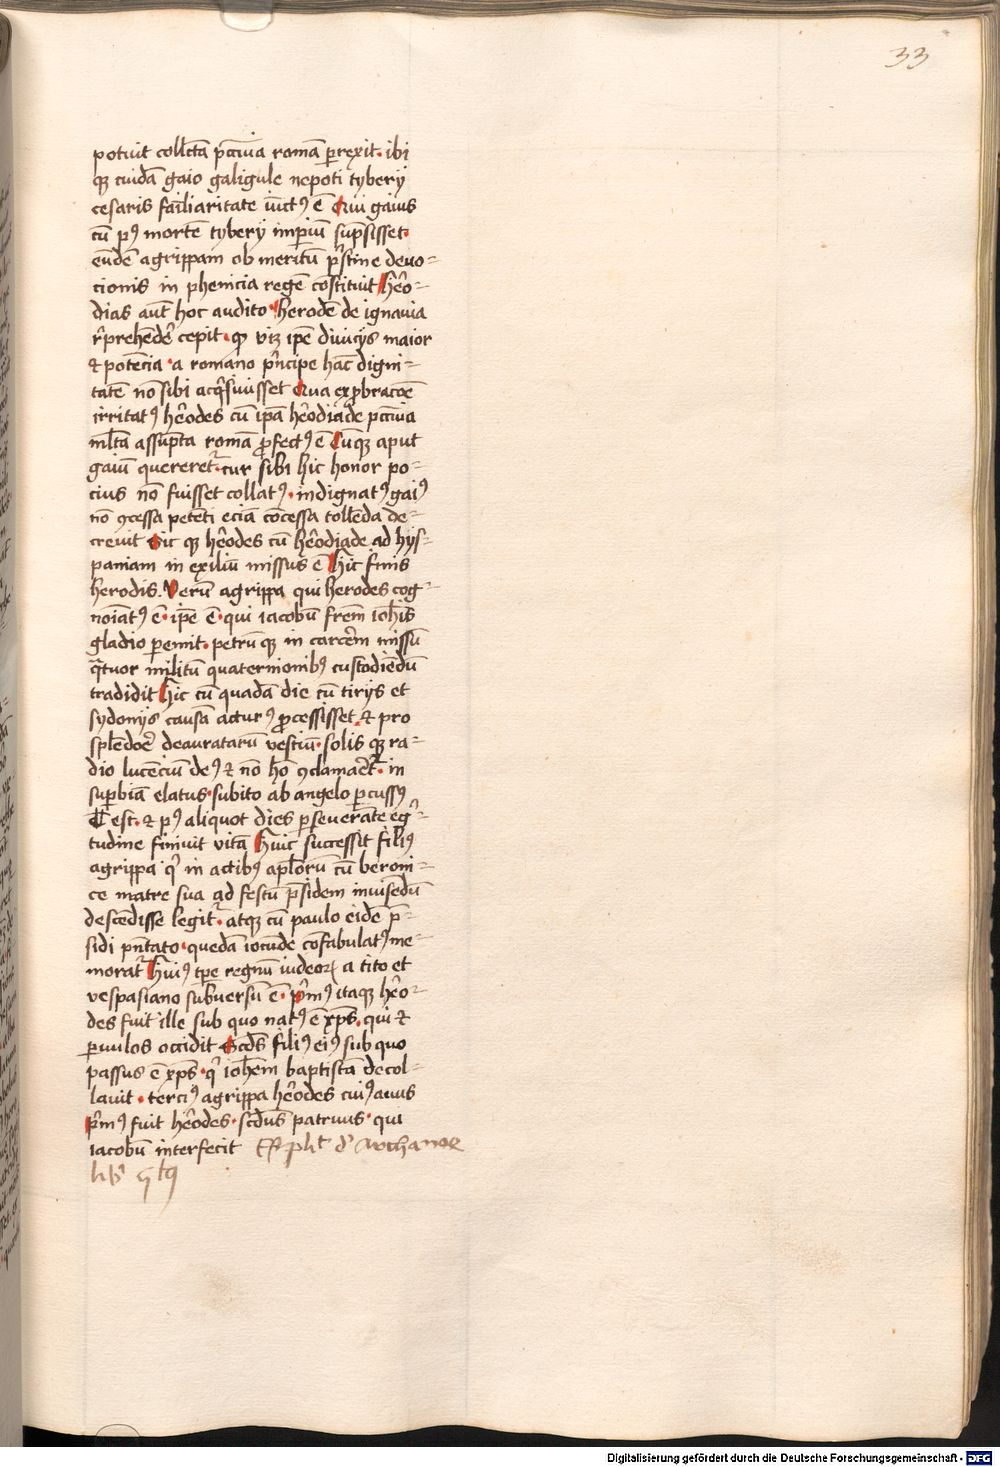 33
potuit collcta pccūia romā ꝑrexit. ibi
qꝫ cuidā gaio galigule nepoti tybery
cesaris fāiliaritate iūctꝰ ē Qui gaius
cū pꝰ mortē tybery imꝑiū supsisset.
eūdē agrippam ob meritū pristine deuo-
cionis in phenicia regē cōstituit Hero-
dias aut hoc audito. herodē de ignauia
rep̄rehēdē cepit. ꝙ viꝫ ipē diuicijs maior
et potēcia. a romano prīcipe hāc digni-
tatē nō sibi acq̄siuisset Qua exꝓbracōe
irritatꝰ herodes cū ipā herodiade pccūia
mlta assūpta romā ꝓfectꝰ ē Cūqꝫ aput
gaiū quereret. cur sibi hic honor po-
cius nō fuisset collatꝰ. indignatꝰ gaiꝰ
nō ꝯcessa petēti eciā cōcessa tollēda de-
creuit Sic qꝫ herodes cū herodiade ad hys-
paniam in exiliū missus ē Hic finis
herodis. Verū agrippa qui herodes cog-
noīatꝰ ē. ipē ē. qui iacobū frēm iohis
gladio ꝑemit. petrū qꝫ in carcēm missū
qtuor militū quaternionibꝰ custodiēdū
tradidit Hic cū quadā die cū tirijs et
sydonijs causā acturꝰ ꝓcessisset. et pro
splēdoē deauratarū vestiū. solis qꝫ ra-
dio lucēciū deꝰ et nō hō ꝯclamaet. in
suꝑbiā elatus. subito ab angelo ꝑcussꝰ
est. et pꝰ aliquot dies ꝑseuerāte eg-
tudine finiuit vitā Huic successit filiꝰ
agrippa qi in actibꝰ aplorū cū beroni-
ce matre sua ad festū psidem inuisēdū
descēdisse legit. atqꝫ cū paulo eidē p-
sidi pntato. quedā iocūde cōfabulatꝰ me-
morat Huiꝰ tpe regnū iudeoꝝ a tito et
vespasiano subuersū ē. pimꝰ itaqꝫ hero-
des fuit ille sub quo natꝰ ē xps. qui et
ꝑuulos occidit Scds filiꝰ eiꝰ sub quo
passus ē xps. qi iohēm baptistā decol-
lauit. terciꝰ agrippa herodes cuiꝰ auus
pimꝰ fuit herodes. scdus patruus. qui
iacobū interfecit
Digitalisierung gefördert durch die Deutsche Forschungsgemeinschaft - DFG